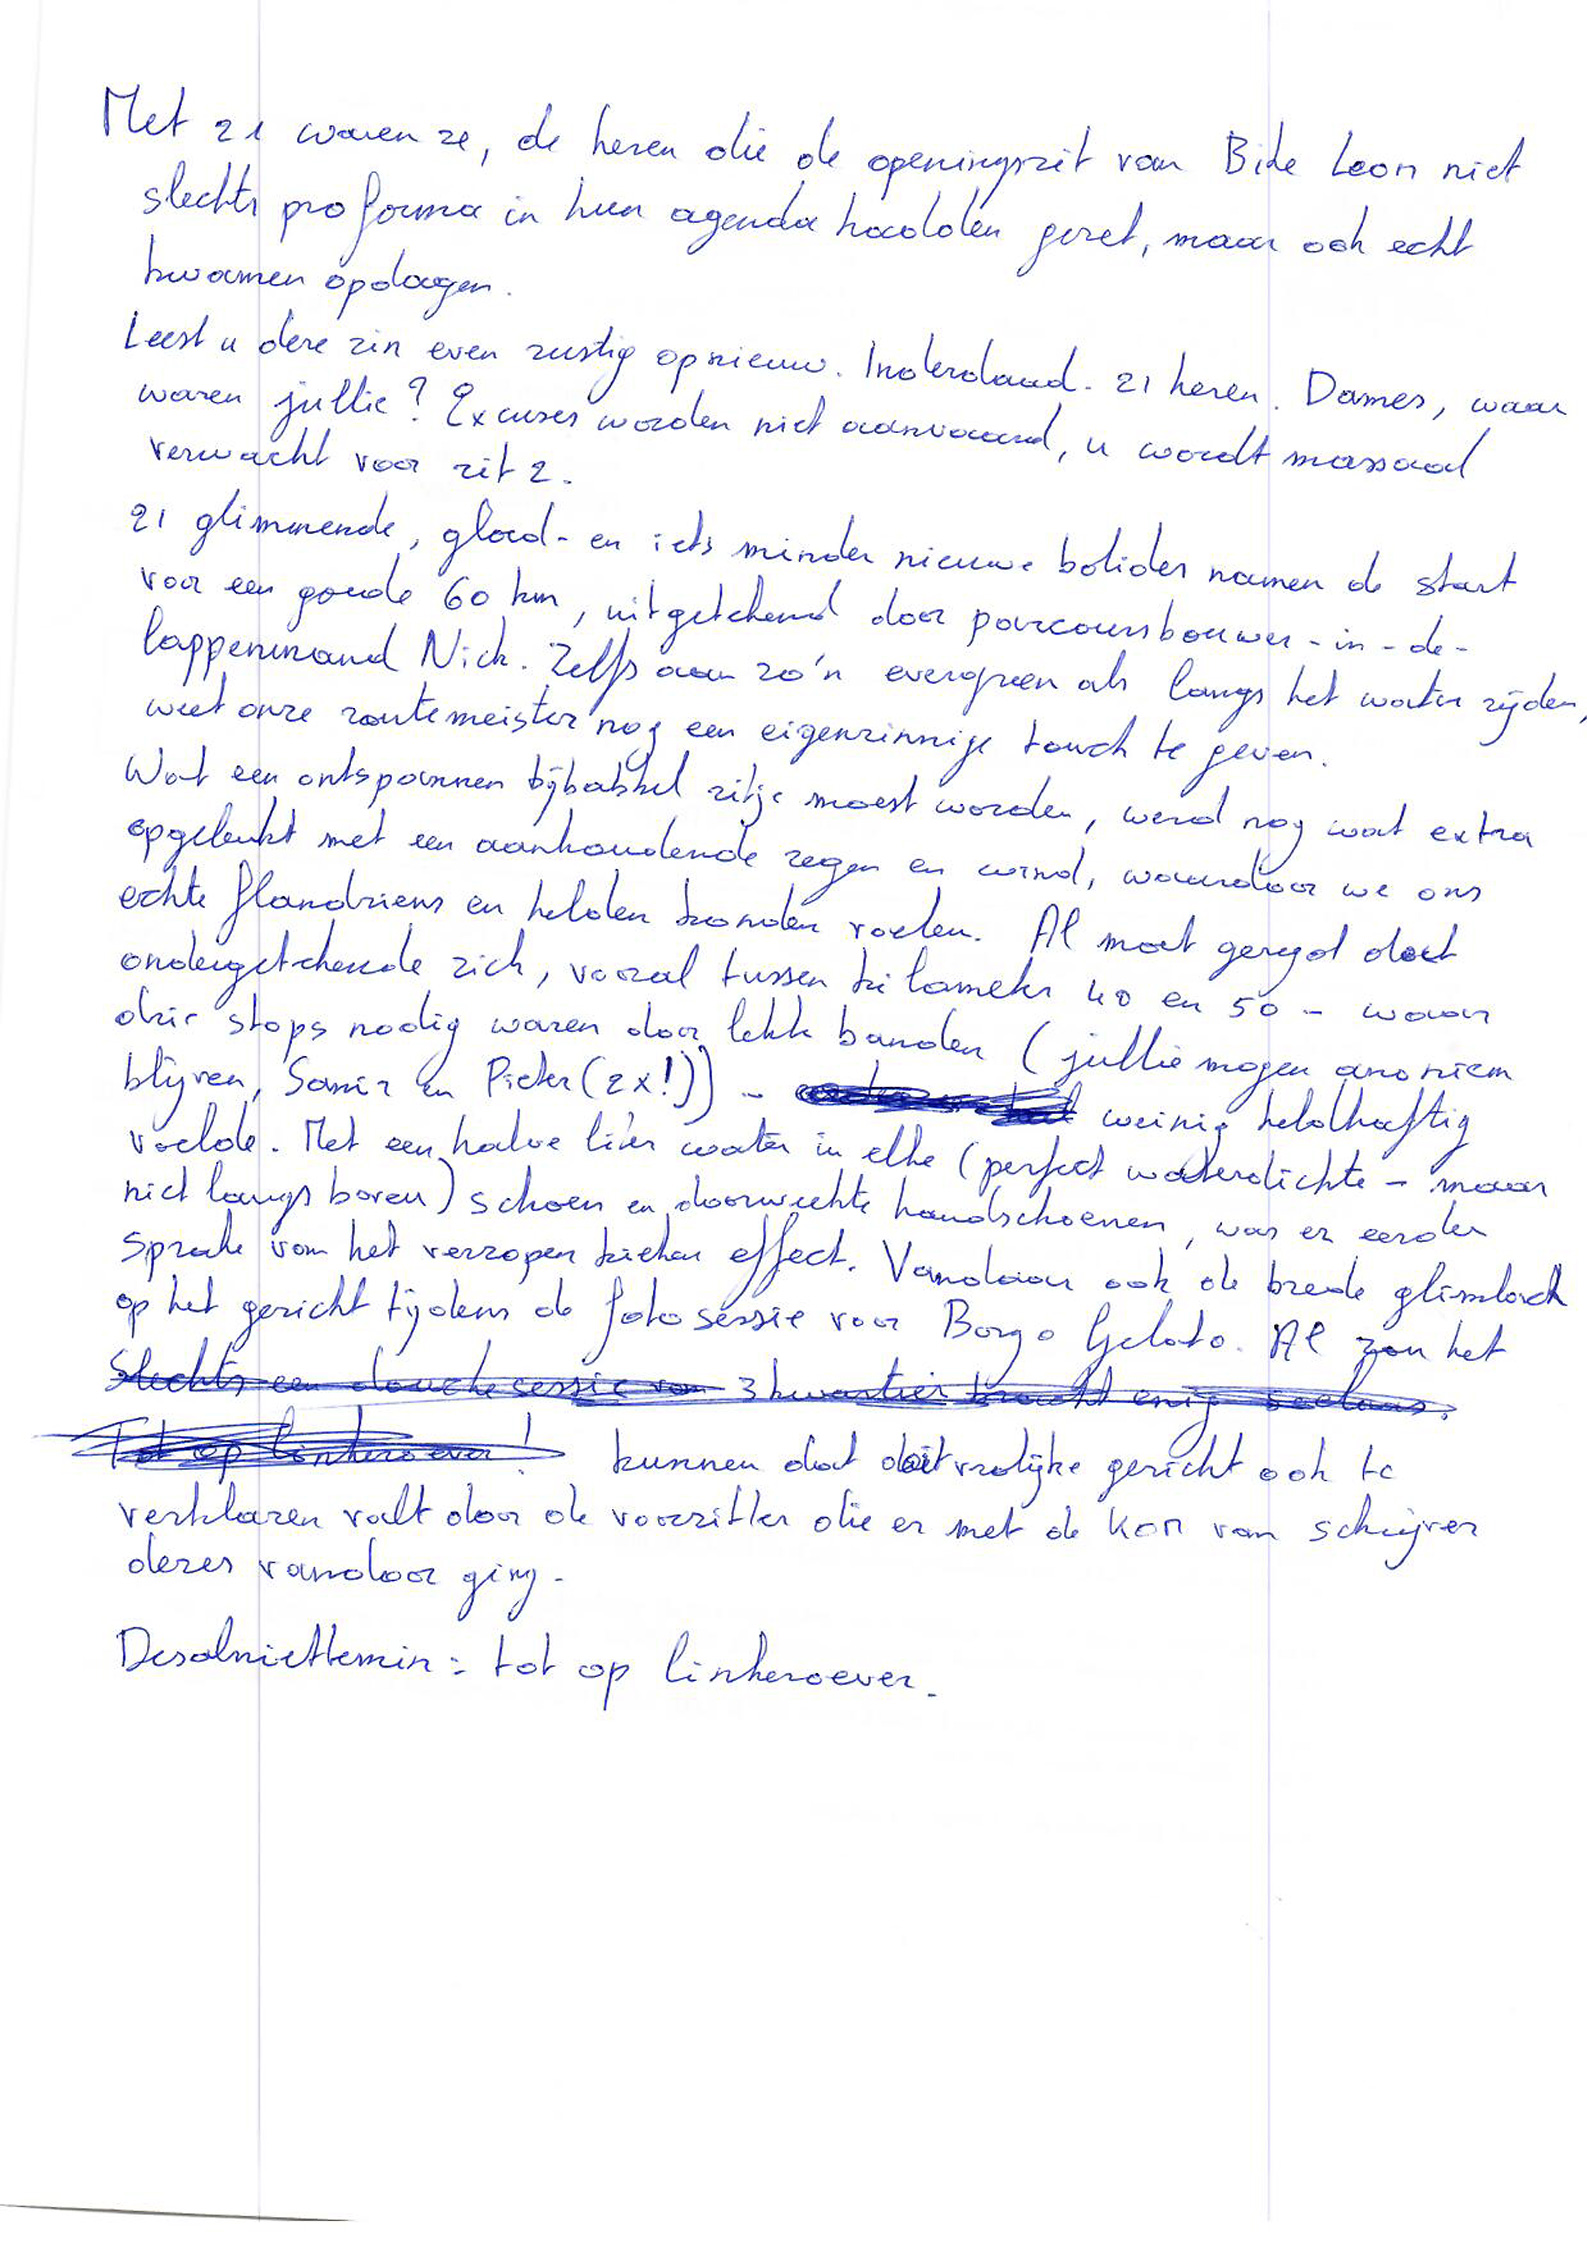 Met 21 waren ze, de heren die de openingsrit van Bike Leon niet
slechts pro forma in hun agenda hadden gezet, maar ook echt
kwamen opdagen.
Leest u deze zin even rustig opnieuw. Inderdaad. 21 heren. Dames, waar
waren jullie? Excuses worden niet aanvaard, u wordt massaal
verwacht voor rit 2.
21 glimmende, glad- en iets minder nieuwe bolides namen de start
voor een goede 60 km, uitgetekend door parcoursbouwer-in-de-
lappenmand Nick. Zelfs aan zo'n evergreen als langs het water rijden,
weet onze routemeister nog een eigenzinnige touch te geven.
Wat een ontspannen bijbabbel ritje moest worden, werd nog wat extra
opgeleukt met een aanhoudende regen en wind, waardoor we ons
echte flandriens en helden konden voelen. Al moet gezegd dat
ondergetekende zich, vooral tussen kilometer 40 en 50 - waar
drie stops nodig waren door lekke banden (jullie mogen anoniem
blijven, Samir en Pieter (2x!)) - weinig heldhaftig
voelde. Met een halve liter water in elke (perfect waterdichte - maar
niet langs boven) schoen en doorweekte handschoenen, was er eerder
sprake van het verzopen kieken effect. Vandaar ook de brede glimlach
op het gezicht tijdens de fotosessie voor Borgo Gelato. Al zou het
Slechts een douchesessie van 3 kwartier bracht enig soelaas.
Tot op linkeroever! kunnen dat dat vrolijke gezicht ook te
verklaren valt door de voorzitter die er met de KOM van schrijver
dezes vandoor ging.
Desalniettemin: tot op linkeroever.